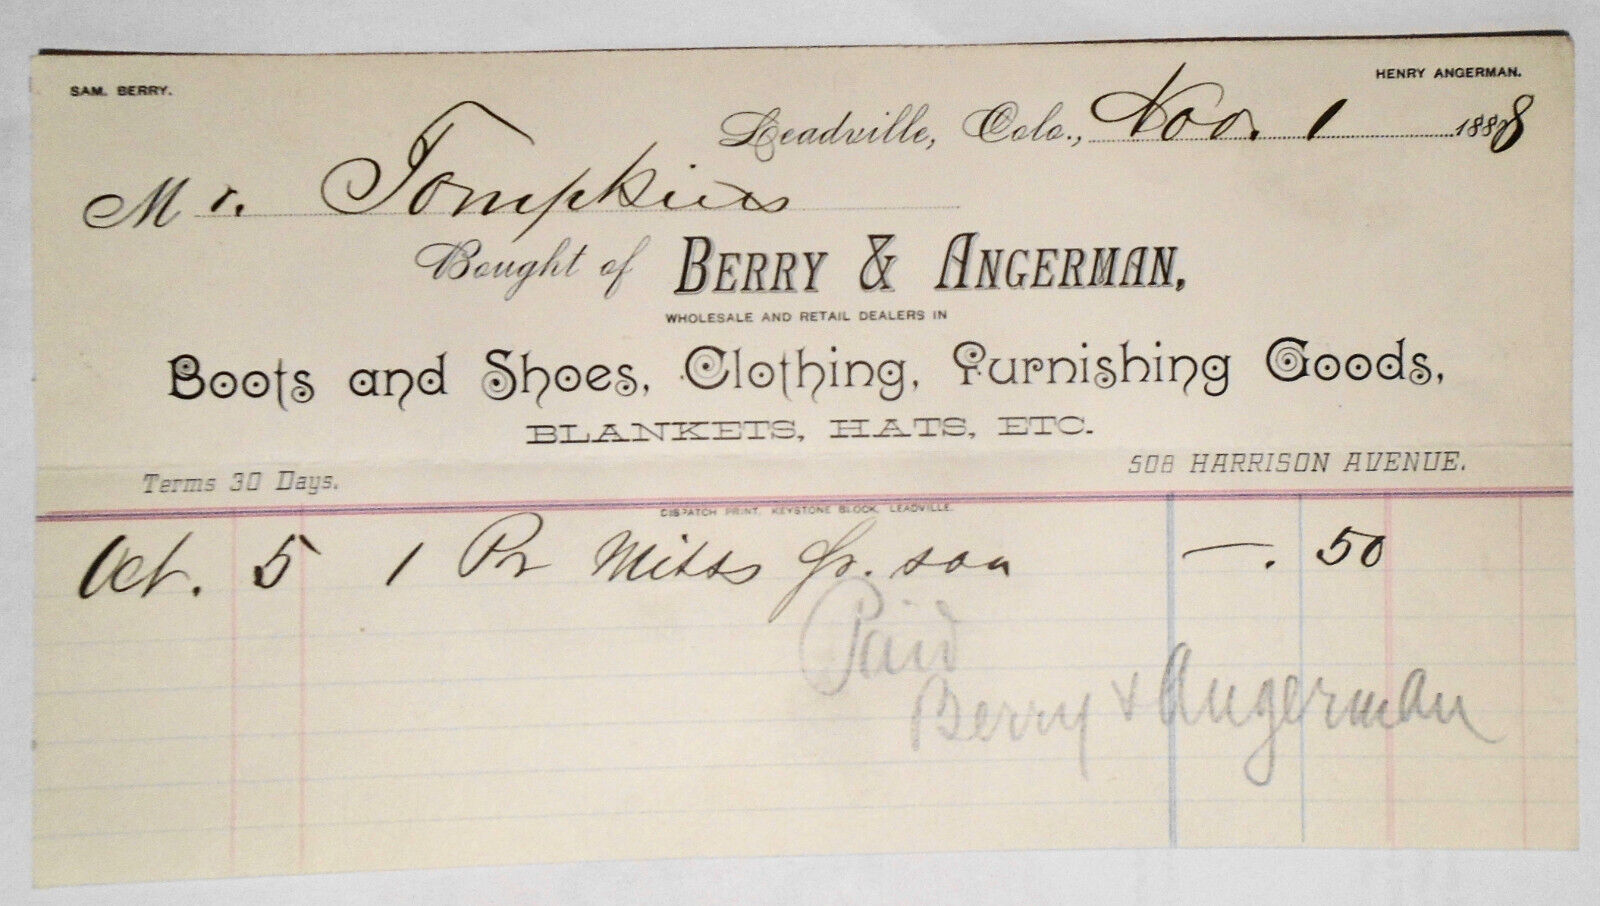 SAM. BERRY.
HENRY ANGERMAN.
Leadville, Colo., Nov. 1 1888
Mr. Tompkins
Bought of BERRY & ANGERMAN,
WHOLESALE AND RETAIL DEALERS IN
Boots and Shoes, Clothing, Furnishing Goods,
BLANKETS, HATS, ETC.
Terms 30 Days.
508 HARRISON AVENUE.
DISPATCH PRINT, KEYSTONE BLOCK, LEADVILLE.
Oct. 5 1 Pr Mitts fr. son —. 50
Paid
Berry & Angerman